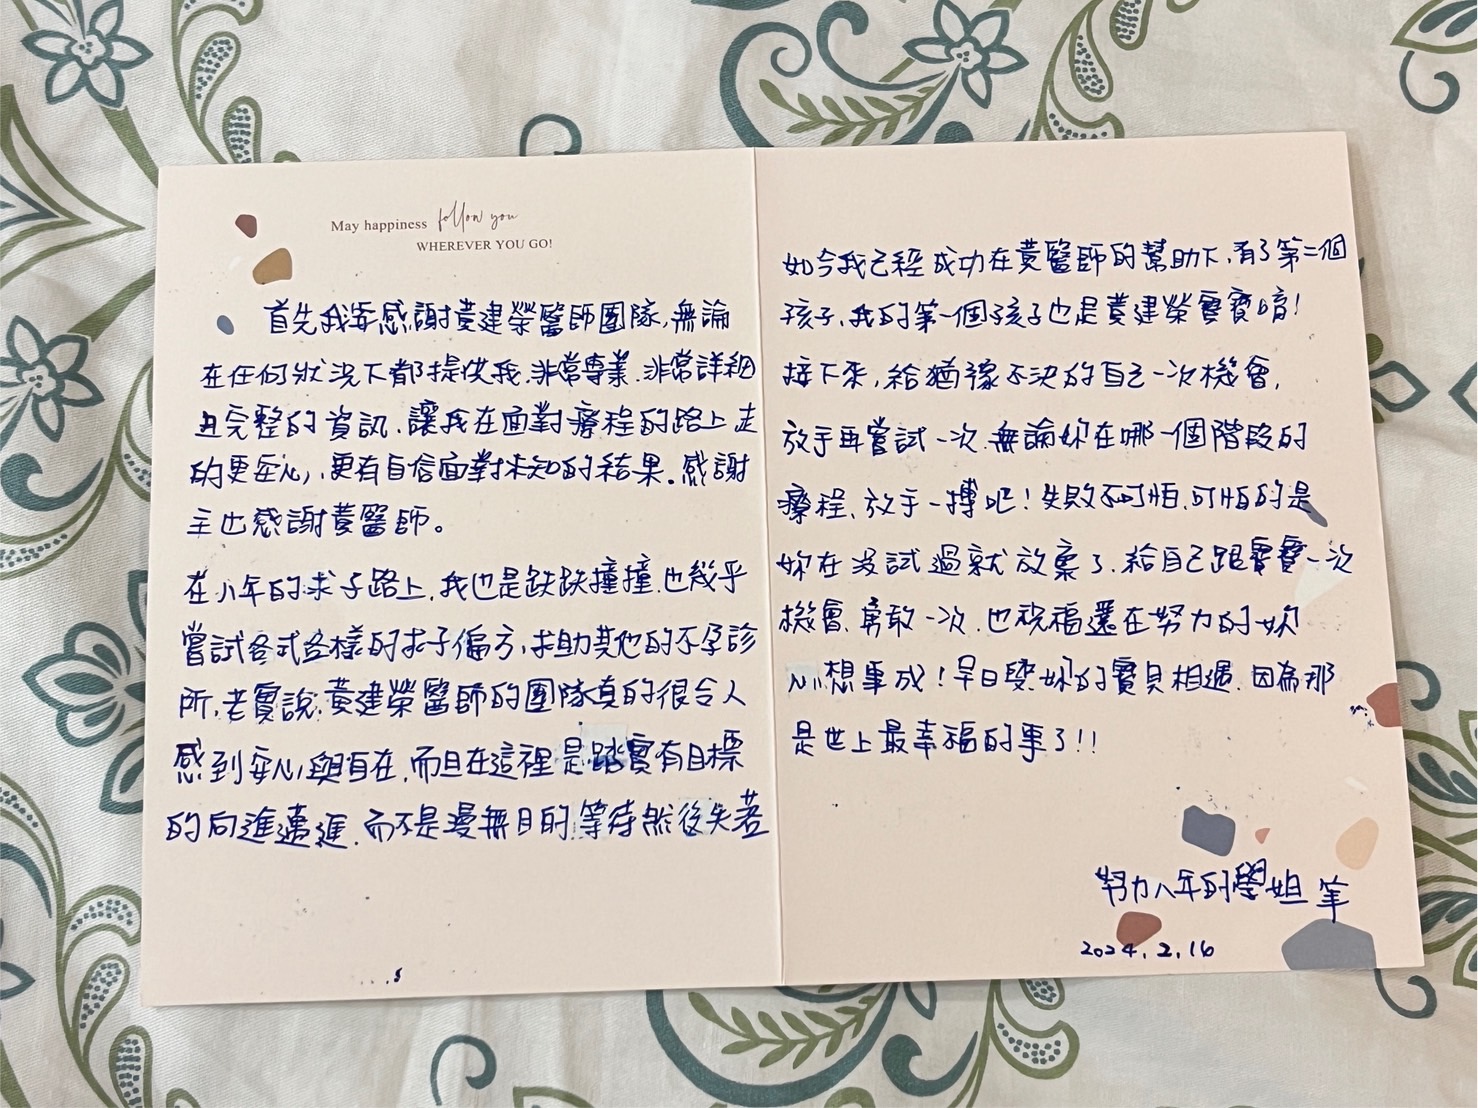 May happiness follow you
WHEREVER YOU GO!
首先我要感謝黃建榮醫師團隊,無論
在任何狀況下都提供我,非常專業、非常詳細
且完整的資訊、讓我在面對療程的路上走
的更安心,更有自信面對未知的結果。感謝
主也感謝黃醫師。
在八年的求子路上,我也是跌跌撞撞、也幾乎
嘗試各式各樣的求子偏方,求助其他的不孕診
所,老實說,黃建榮醫師的團隊真的很令人
感到安心與自在,而且在這裡是踏實有目標
的向進邁進,而不是漫無目的等待然後失落
如今我已經成功在黃醫師的幫助下,有了第二個
孩子、我的第一個孩子也是黃建榮寶寶唷!
接下來,給猶豫不決的自己一次機會,
放手再嘗試一次、無論妳在哪一個階段的
療程、放手一搏吧!失敗不可怕,可怕的是
妳在沒試過就放棄了、給自己跟寶寶一次
機會、勇敢一次、也祝福還在努力的妳
心想事成!早日與妳的寶貝相遇、因為那
是世上最幸福的事了!!
努力八年的學姐 筆
2024.2.16